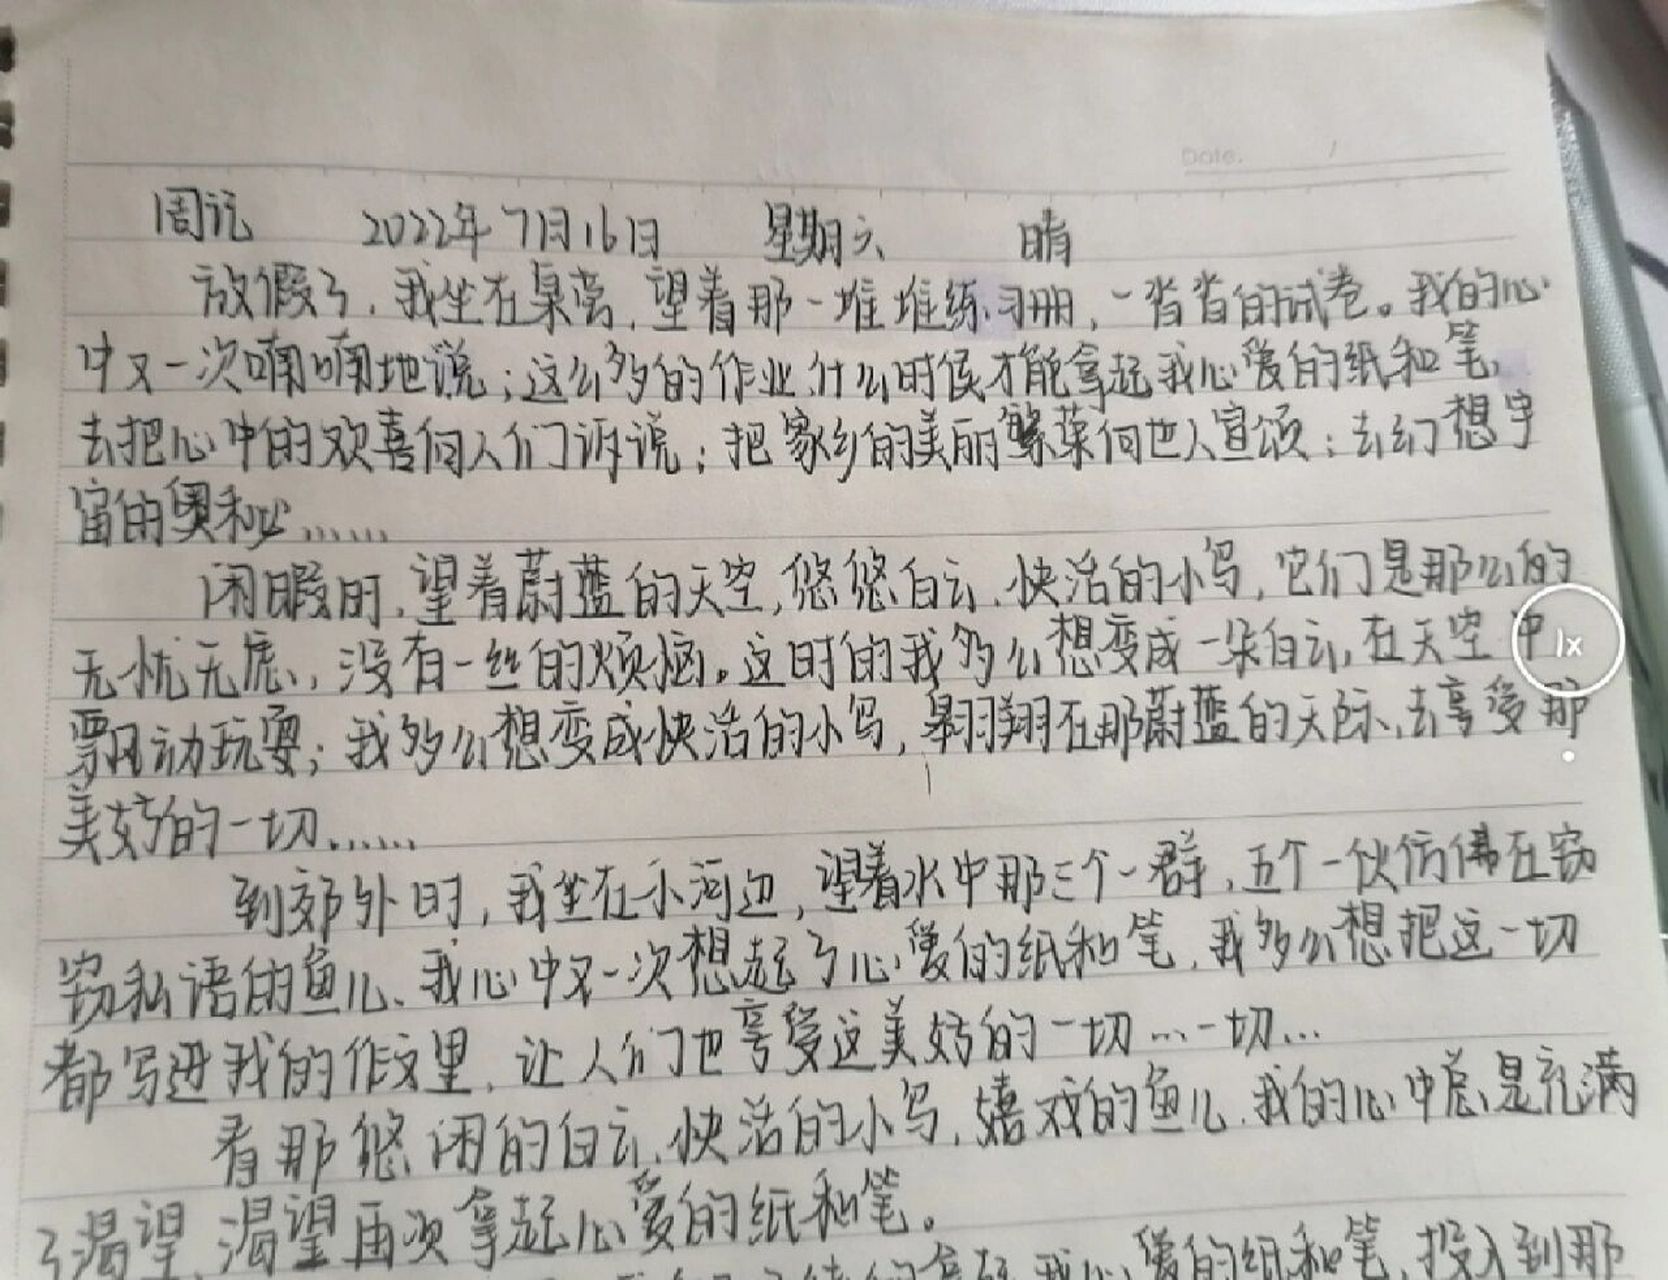 Date. /
周记 2022年7月16日 星期六 晴
放假了,我坐在桌旁,望着那一堆堆练习册,一沓沓的试卷。我的心
中又一次喃喃地说;这么多的作业,什么时候才能拿起我心爱的纸和笔,
去把心中的欢喜向人们诉说;把家乡的美丽繁荣向世人宣颂;去幻想宇
宙的奥秘……
闲暇时,望着蔚蓝的天空,悠悠白云,快活的小鸟,它们是那么的
无忧无虑,没有一丝的烦恼。这时的我多么想变成一朵白云,在天空中
飘动玩耍;我多么想变成快活的小鸟,翱翔在那蔚蓝的天际,去享受那
美好的一切……
到郊外时,我坐在小河边,望着水中那三个一群,五个一伙仿佛在窃
窃私语的鱼儿,我心中又一次想起了心爱的纸和笔,我多么想把这一切
都写进我的作文里,让人们也享受这美好的一切…一切…
看那悠闲的白云,快活的小鸟,嬉戏的鱼儿,我的心中总是充满
了渴望,渴望再次拿起心爱的纸和笔。
拿起我心爱的纸和笔,投入到那
1x